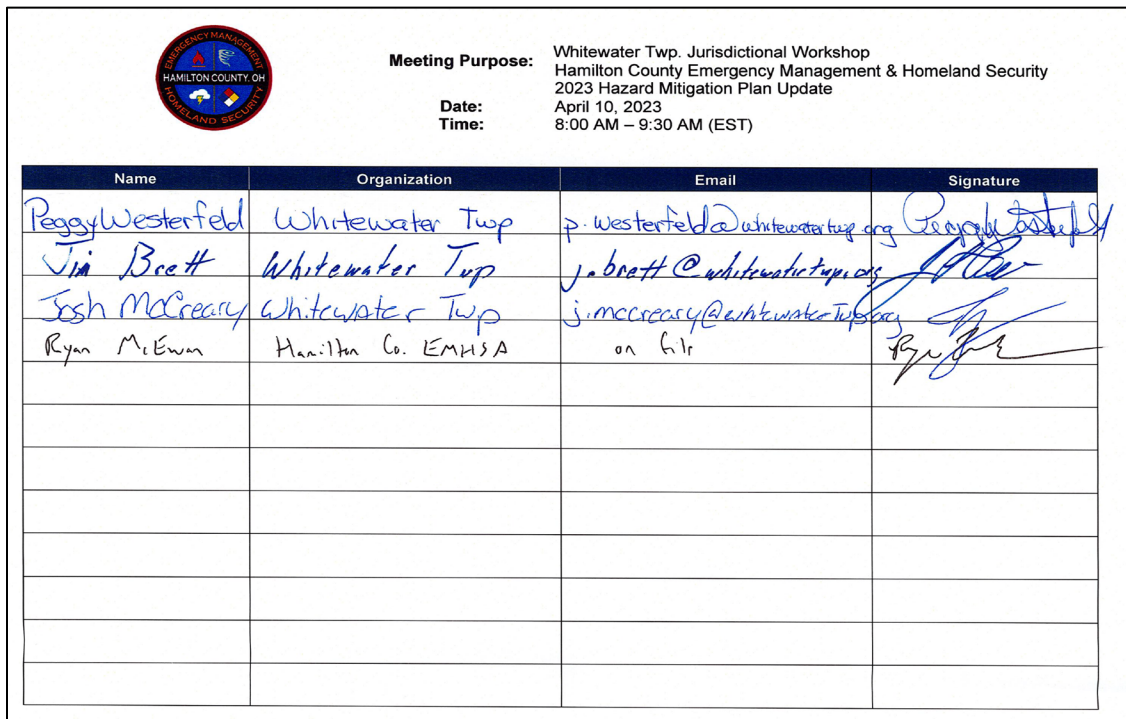 EMERGENCY MANAGEMENT
HAMILTON COUNTY, OH
HOMELAND SECURITY
Meeting Purpose: Whitewater Twp. Jurisdictional Workshop
Hamilton County Emergency Management & Homeland Security
2023 Hazard Mitigation Plan Update
Date: April 10, 2023
Time: 8:00 AM – 9:30 AM (EST)
Name Organization Email Signature
Peggy Westerfeld Whitewater Twp p.westerfeld@whitewatertwp.org Peggy Westerfeld
Jim Brett Whitewater Twp j.brett@whitewatertwp.org
Josh McCreary Whitewater Twp j.mccreary@whitewaterTwp.org
Ryan McEwan Hamilton Co. EMHSA on file